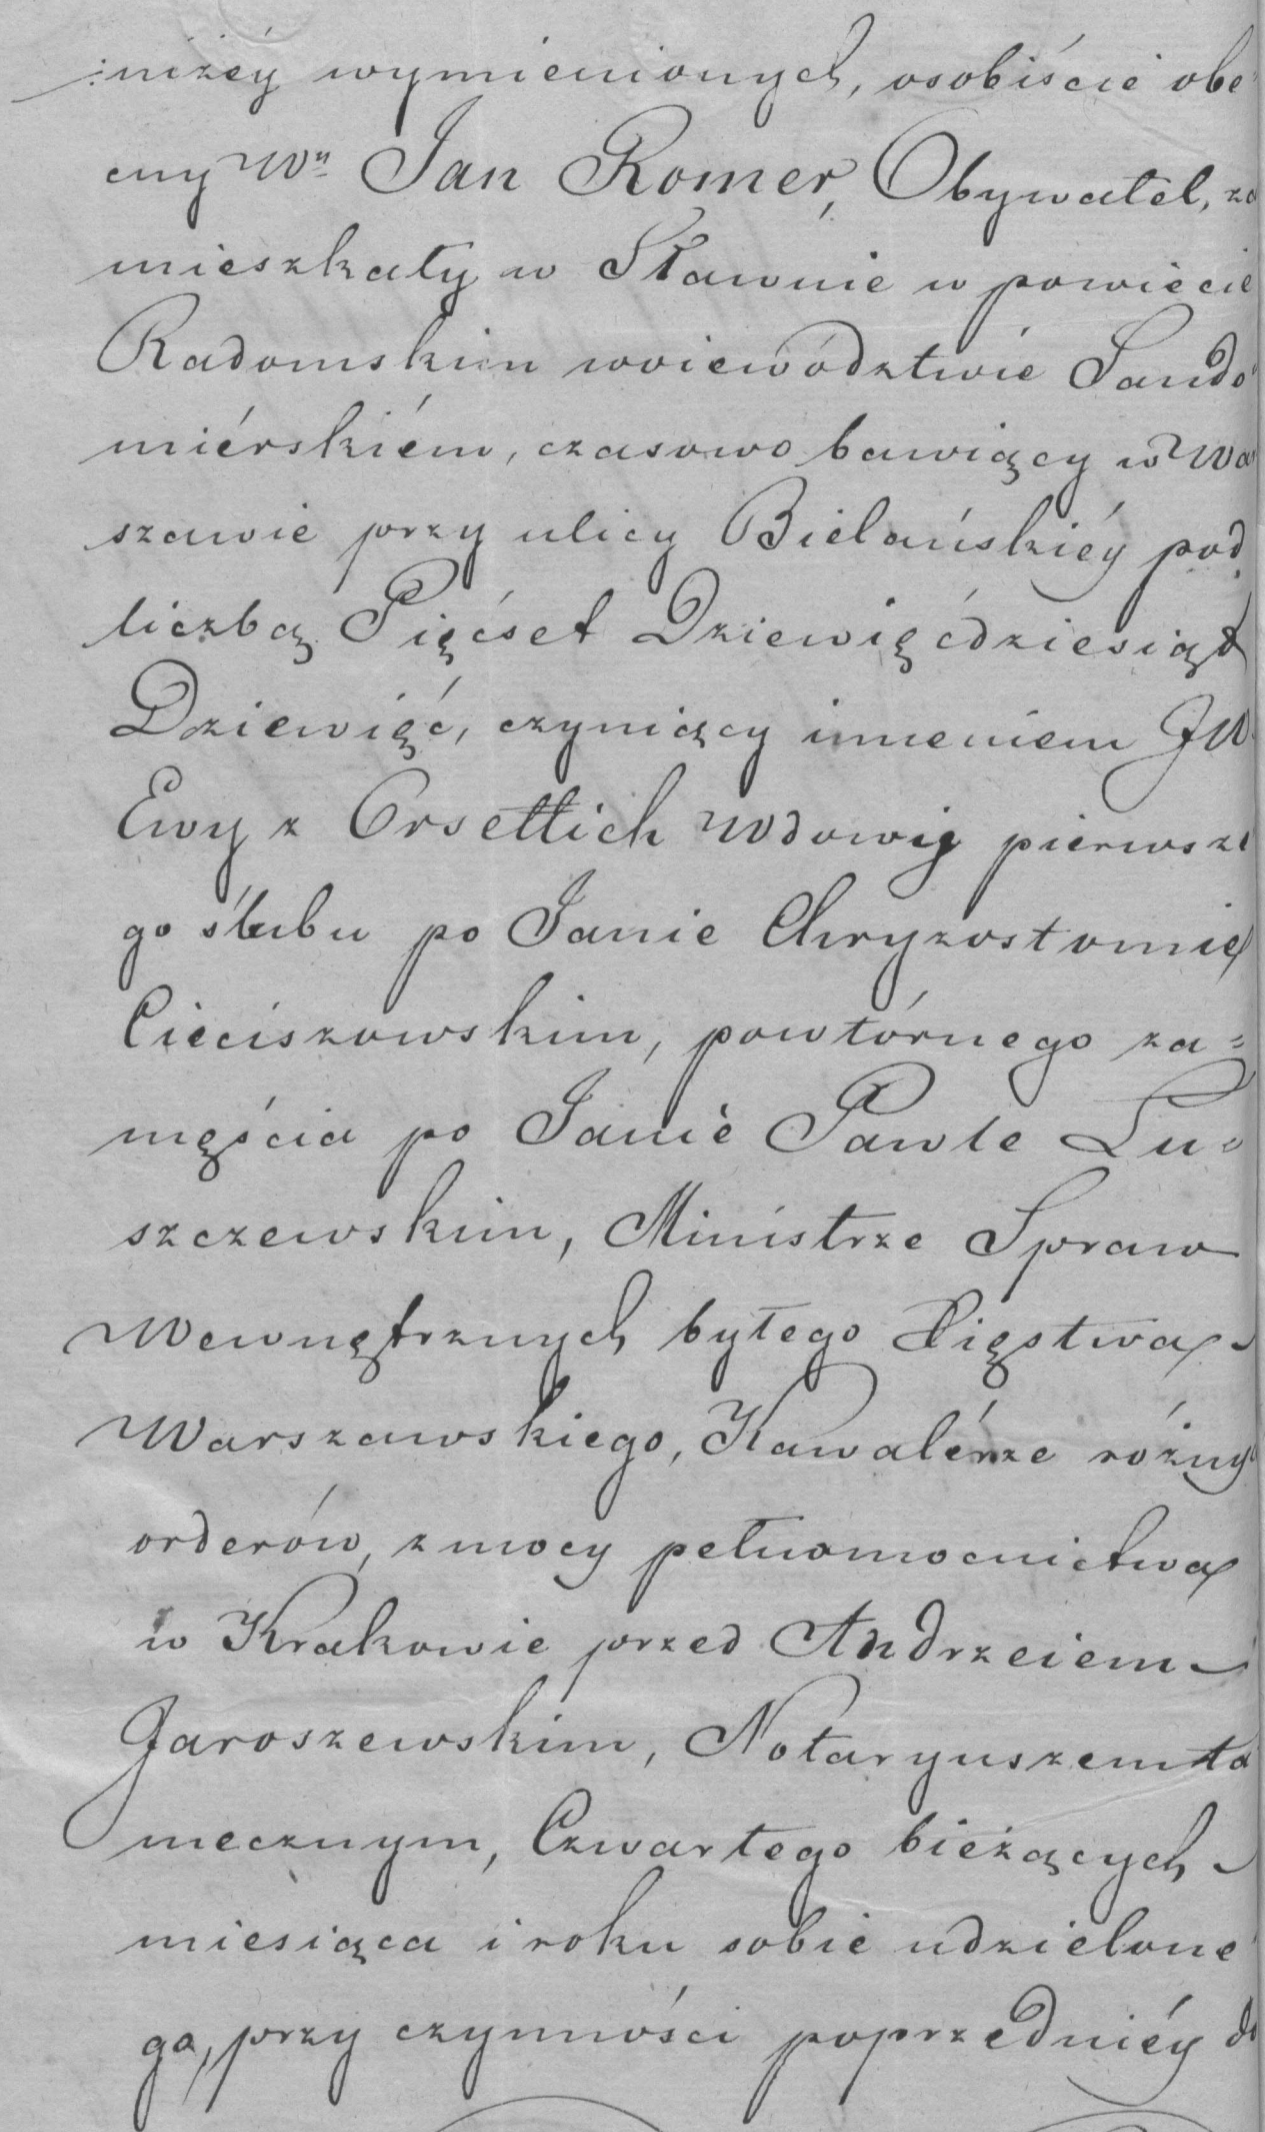 niżéy wymienionych, osobiście obe
cny Wn Jan Romer, Obywatel, za
mieszkały w Sławnie w powiecie
Radomskim woiewództwie Sando
miérskiém, czasowo bawiący w Wa
szawie przy ulicy Bielańskiéy pod
liczbą Pięćset Dziewięćdziesiąt
Dziewięć, czyniący imieniem JW
Ewy z Orsettich Wdowy pierwsze
go ślubu po Janie Chryzostomie
Cieciszowskim, powtórnego za=
męścia po Janie Pawle Lu=
szczewskim, Ministrze Spraw
Wewnętrznych byłego Xięstwa
Warszawskiego, Kawalérze różny
orderów, z mocy pełnomocnictwa
w Krakowie przed Andrzeiem
Jaroszewskim, Notaryuszem ta
mecznym, Czwartego bieżących
miesiąca i roku sobie udzielone
go, przy czynności poprzedniéy do